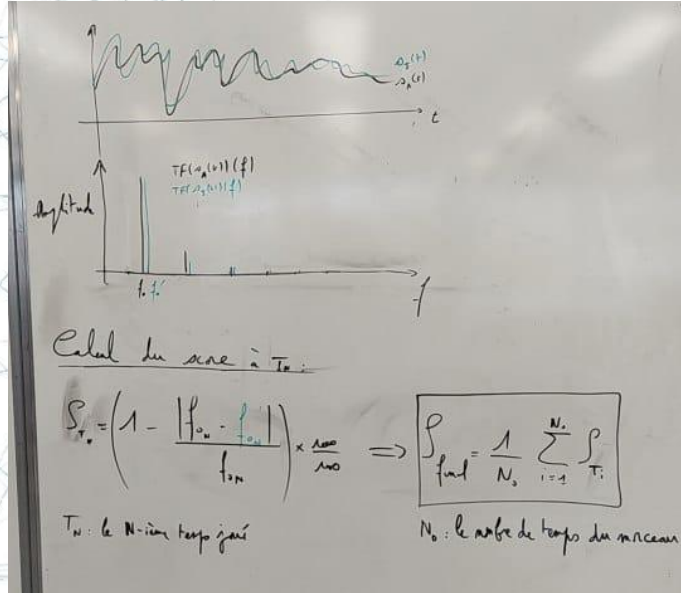 s_S(t)
s_A(t)
t
TF(s_A(t))(f)
TF(s_S(t))(f)
Amplitude
f₀ f₀'
f
Calcul du score à T_N :
S_{T_N} = (1 - |f_{0_N} - f_{0_N}'| / f_{0_N}) × 100/100 ⇒ S_final = 1/N₀ Σ_{i=1}^{N₀} S_{T_i}
T_N : le N-ième temps joué
N₀ : le nombre de temps du morceau